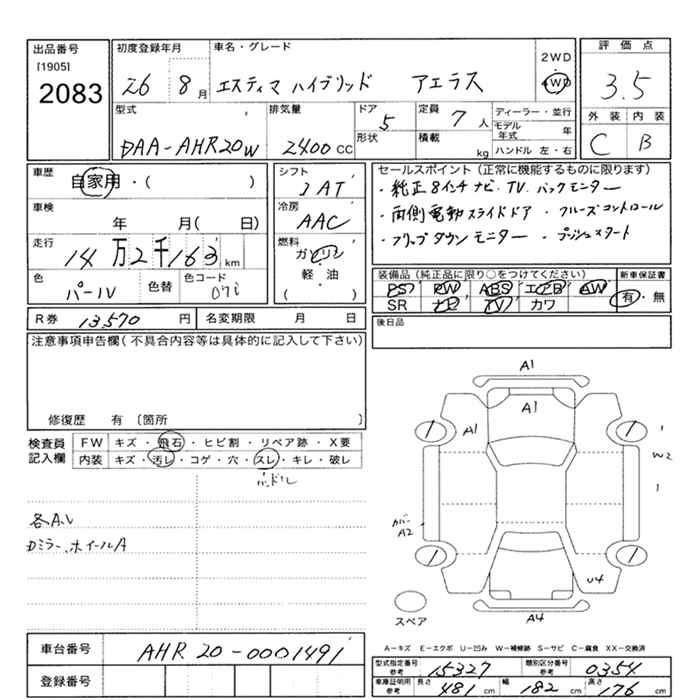 出品番号
[1905]
2083
初度登録年月
26 8月
車名・グレード
エスティマ ハイブリッド アエラス
2WD
4WD
評価点
3.5
外装 内装
C B
型式
DAA-AHR20W
排気量
2400 CC
ドア
5
形状
定員
7 人
積載
kg
ディーラー・並行
モデル年式 年
ハンドル 左・右
車歴
自家用・( )
車検
年 月( 日)
走行
14万2千163 km
色
パール
色替
色コード
070
シフト
IAT
冷房
AAC
燃料
ガソリン
軽・油
( )
セールスポイント(正常に機能するものに限ります)
・純正8インチナビ・TV・バックモニター
・両側電動スライドドア ・クルーズコントロール
・フリップダウンモニター ・プッシュスタート
装備品(純正品に限り○をつけてください)
PS PW ABS エアB AW
SR ナビ TV カワ
新車保証書
有・無
R券 13,570 円
名変期限 月 日
後日品
注意事項申告欄(不具合内容等は具体的に記入して下さい)
修復歴 有 〔箇所
検査員記入欄
FW キズ・飛石・ヒビ割・リペア跡・X要
内装 キズ・汚レ・コゲ・穴・スレ・キレ・破レ
ハンドル
各A.U
Dミラー、ホイールA
A1
A1
A1
W2
カバーA2
U4
A4
スペア
A−キズ E−エクボ U−凹み W−補修跡 S−サビ C−腐食 XX−交換済
車台番号
AHR20-0001491
登録番号
型式指定番号 参考
15327
類別区分番号 参考
0354
車庫証明用 参考
長さ 481 cm 幅 182 cm 高さ 176 cm